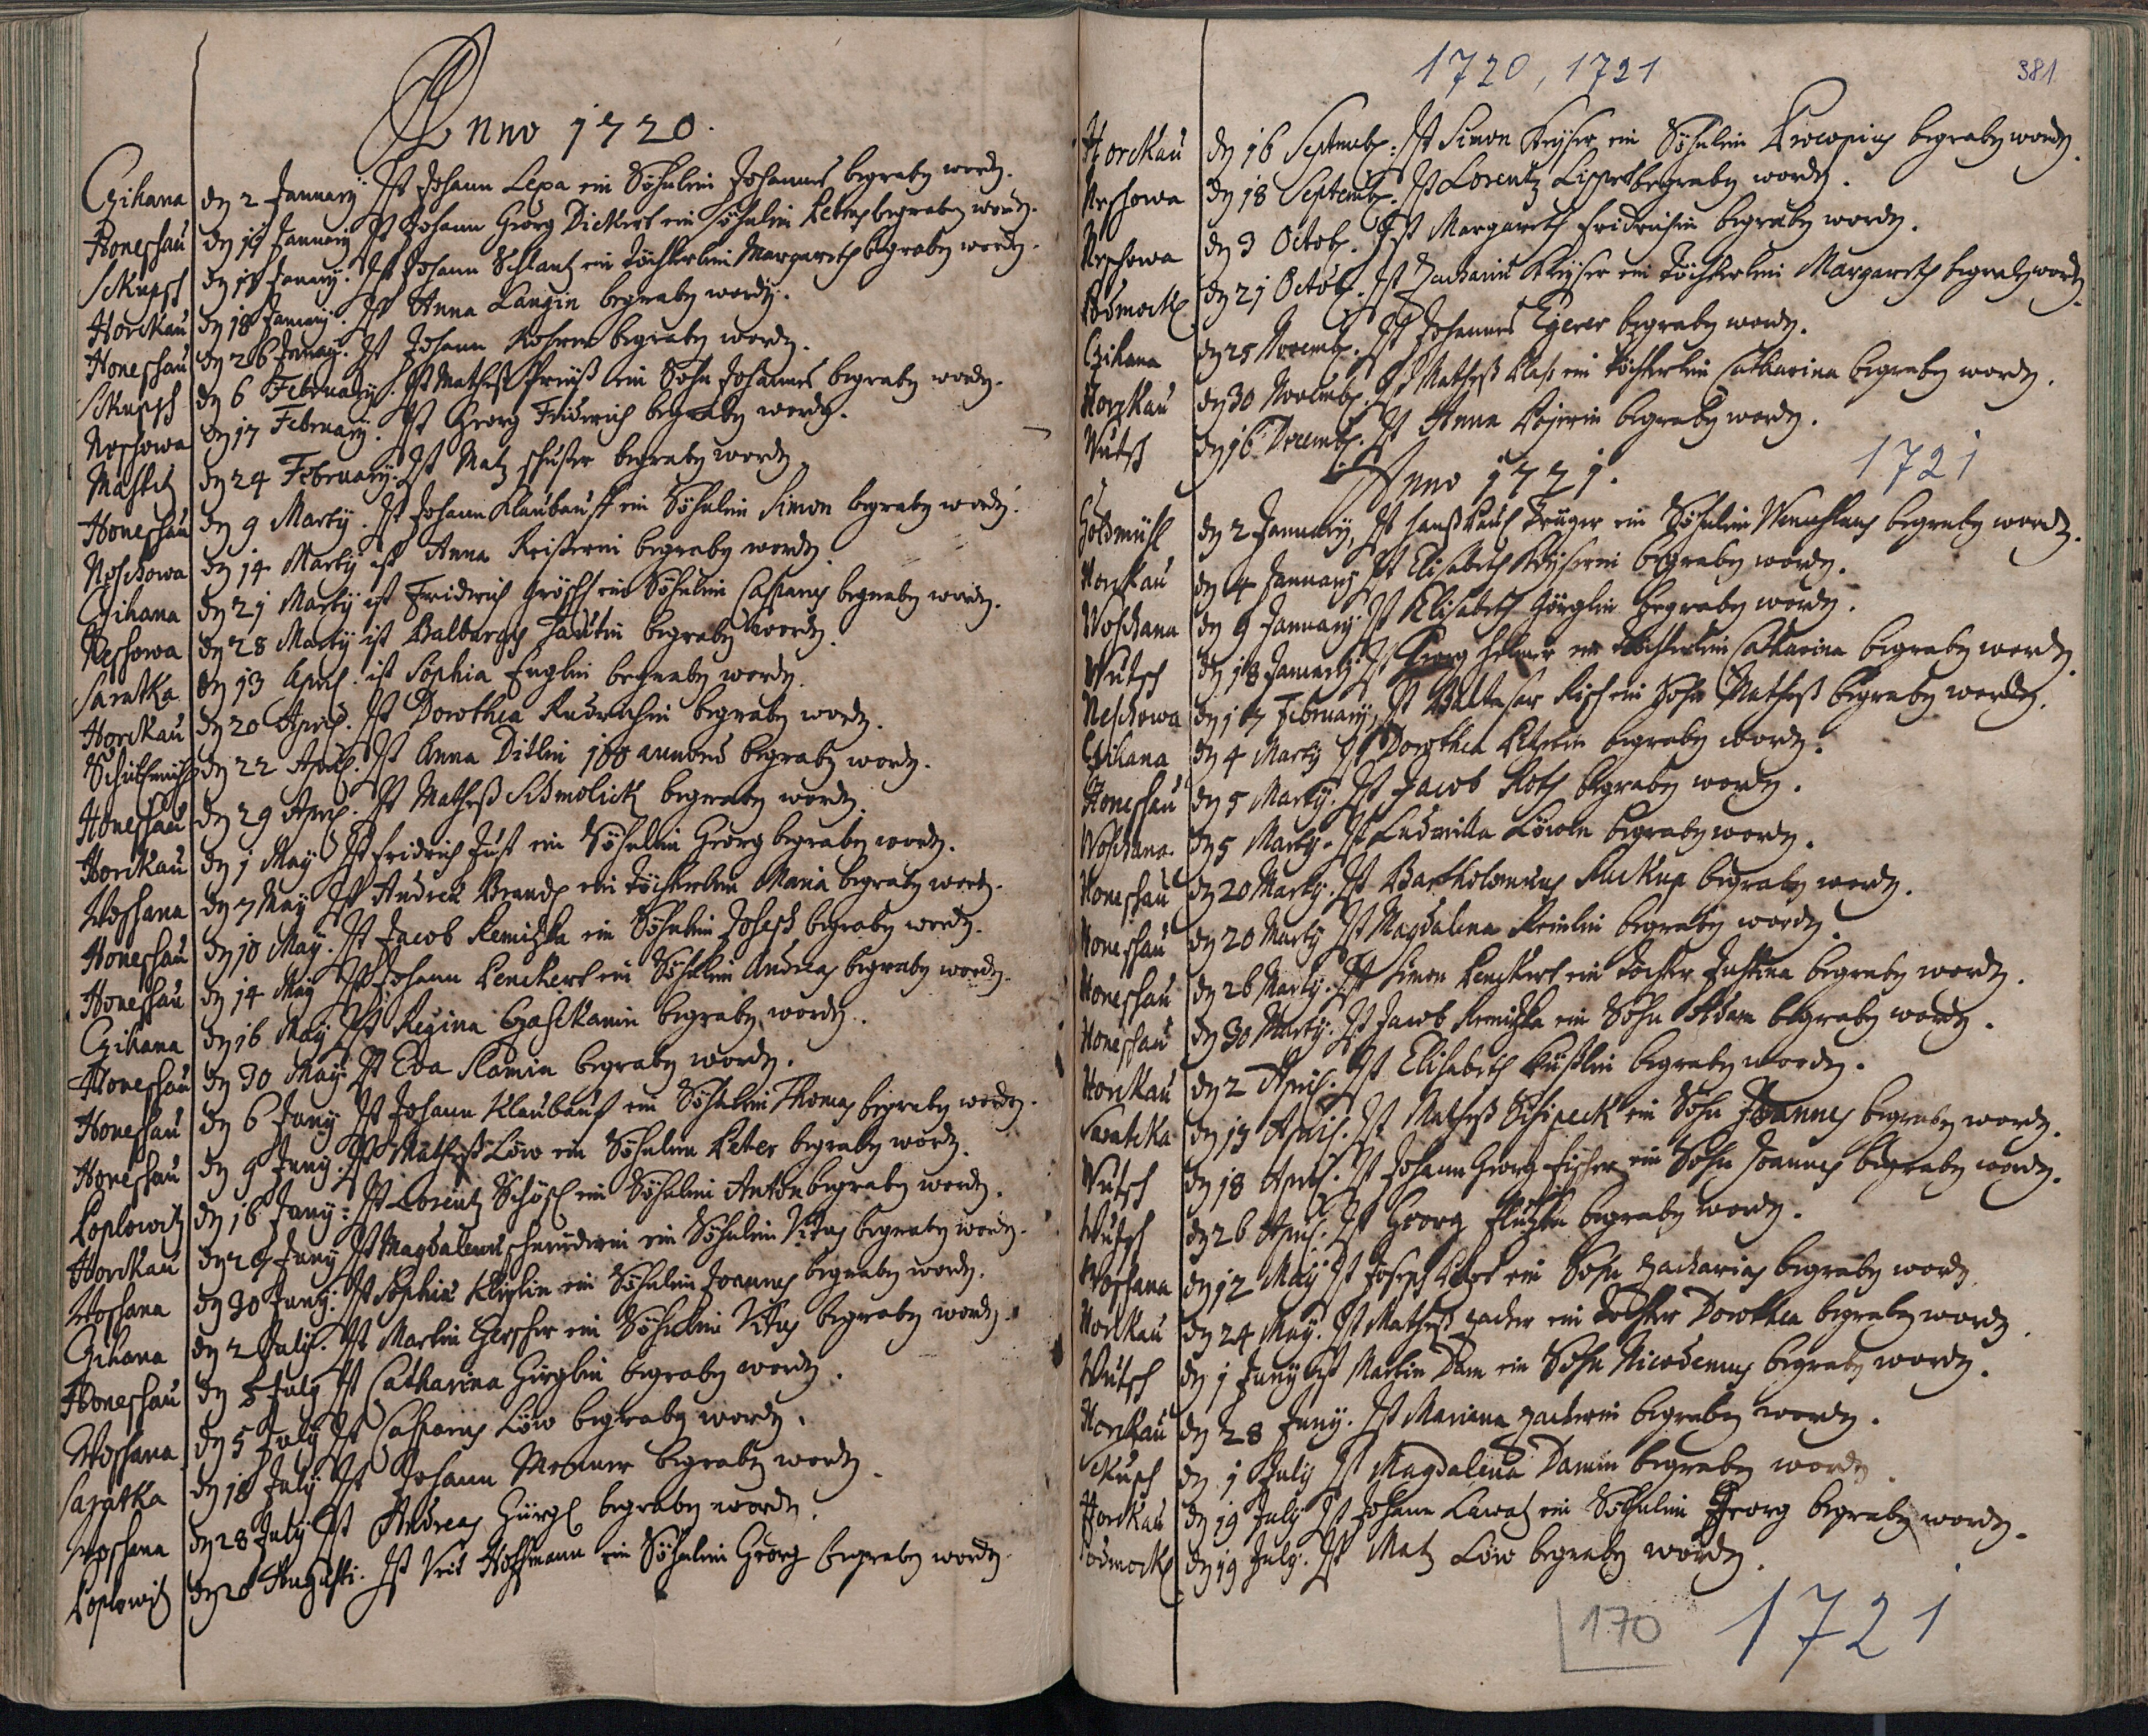 Anno 1720.
Czihana den 2 January Ist Johann Lepa ein Söhnlein Johannes begraben worden.
Honeschau den 14 January Ist Johann Georg Dickert ein Söhnlein Petrus begraben worden.
Skupsch den January. Ist Johann Schlantz ein Töchterlein Margareth begraben worden.
Horckau den 18 January. Ist Anna Langin begraben worden.
Honeschau den 26 January. Ist Johann begraben worden.
Skupsch den 6 February. Ist Matheß ein Sohn Johannes begraben worden.
Neschowa den 17 February. Ist Georg Fridrich begraben worden.
den 24 February. Ist Matz Schuster begraben worden.
Honeschau den 9 Marty. Ist Johann Klaubauff ein Söhnlein Simon begraben worden.
Neschowa den 14 Marty ist Anna begraben worden.
Czihana den 21 Marty ist Fridrich Gröschl ein Söhnlein Casparus begraben worden.
Neschowa den 28 Marty ist begraben worden.
Saratka den 13 April. ist Sophia Englin begraben worden.
Horckau den 20 April. Ist Dorothea begraben worden.
den 22 April. Ist Anna Ditlin 100 annorum begraben worden.
Honeschau den 29 April. Ist Matheß Schmolick begraben worden.
Horckau den 1 May Ist Fridrich Just ein Söhnlein Georg begraben worden.
Woschana den 7 May Ist Andreas Brandl ein Töchterlein Maria begraben worden.
Honeschau den 10 May. Ist Jacob Remischka ein Söhnlein Joseph begraben worden.
Honeschau den 14 May Ist Johann Penckert ein Söhnlein Andreas begraben worden.
Czihana den 16 May Ist Regina begraben worden.
Honeschau den 30 May Ist Eva begraben worden.
Honeschau den 6 Juny Ist Johann Klaubauf ein Söhnlein Thomas begraben worden.
Honeschau den 9 Juny. Ist Matheß Löw ein Söhnlein Peter begraben worden.
Poplowitz den 16 Juny: Ist Lorentz Schösl ein Söhnlein Anton begraben worden.
Horckau den 29 Juny Ist Magdalena Schneiderin ein Söhnlein Vitus begraben worden.
Woschana den 30 Juny. Ist Sophia ein Söhnlein Joannes begraben worden.
Czihana den 2 July. Ist Martin Gerscher ein Söhnlein Vitus begraben worden.
Honeschau den July Ist Catharina Girglin begraben worden.
Woschana den 5 July Ist Casparus Löw begraben worden.
Saratka den 18 July Ist Johann begraben worden.
Woschana den 28 July Ist Andreas Gürgl begraben worden.
Poplowitz den 28 Augusti. Ist Veit Hoffmann ein Söhnlein Georg begraben worden.
1720, 1721
381
Horckau den 16 Septemb: Ist Simon Keyser ein Söhnlein Procopius begraben worden.
Neschowa den 18 Septemb. Ist Lorentz Lippert begraben worden.
Neschowa den 3 Octob. Ist Margareth Fridrichin begraben worden.
Podmockl den 21 Octob. Ist Zacharias Keyser ein Töchterlein Margareth begraben worden.
Czihana den 25 Novemb. Ist Johannes Egerer begraben worden.
Horckau den 30 Novemb. Ist Matheß ein Töchterlein Catharina begraben worden.
Wutsch den 16 Decemb. Ist Anna begraben worden.
Anno 1721.
1721
den 2 January, Ist Hanß Paul Krüger ein Söhnlein Wenceslaus begraben worden.
Horckau den 4 January Ist Elisabeth Keyserin begraben worden.
Woschana den 9 January Ist Elisabeth Görglin begraben worden.
Wutsch den 18 January Ist Georg ein Töchterlein Catharina begraben worden.
Neschowa den 17 February, Ist Balthasar ein Sohn Matheß begraben worden.
Czihana den 4 Marty Ist Dorothea begraben worden.
Honeschau den 5 Marty. Ist Jacob Roth begraben worden.
Woschana den 5 Marty. Ist Ludmilla Löwin begraben worden.
Honeschau den 20 Marty. Ist Bartholomeus begraben worden.
Honeschau den 20 Marty Ist Magdalena begraben worden.
Honeschau den 26 Marty. Ist Simon Penckert ein Tochter Justina begraben worden.
Honeschau den 30 Marty. Ist Jacob Remischka ein Sohn Adam begraben worden.
Horckau den 2 April. Ist Elisabeth begraben worden.
Saratcka den 13 April. Ist Matheß ein Sohn Joannes begraben worden.
Wutsch den 18 April. Ist Johann Georg Fischer ein Sohn Joannes begraben worden.
Wutsch den 26 April. Ist Georg begraben worden.
Woschana den 12 May Ist Joseph ein Sohn Zacharias begraben worden.
Horckau den 24 May. Ist Matheß ein Tochter Dorothea begraben worden.
Wutsch den 1 Juny ist Martin Dam ein Sohn Nicodemus begraben worden.
Horckau den 28 Juny. Ist Mariana begraben worden.
Skupsch den 1 July Ist Magdalena Damin begraben worden.
Horckau den 19 July Ist Johann ein Söhnlein Georg begraben worden.
Podmockl den 19 July. Ist Matz Löw begraben worden.
170 1721